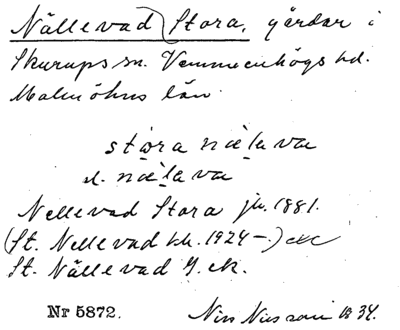 Nällevad Stora, gårdar i
Skurups sn. Vemmenhögs hd.
Malmöhus län.
stora nälava
el. nälava
Nellevad Stora jb. 1881.
(St. Nellevad kb. 1924–.)
St. Nällevad G. ek.
Nr 5872. Nils Nilsson 1934.